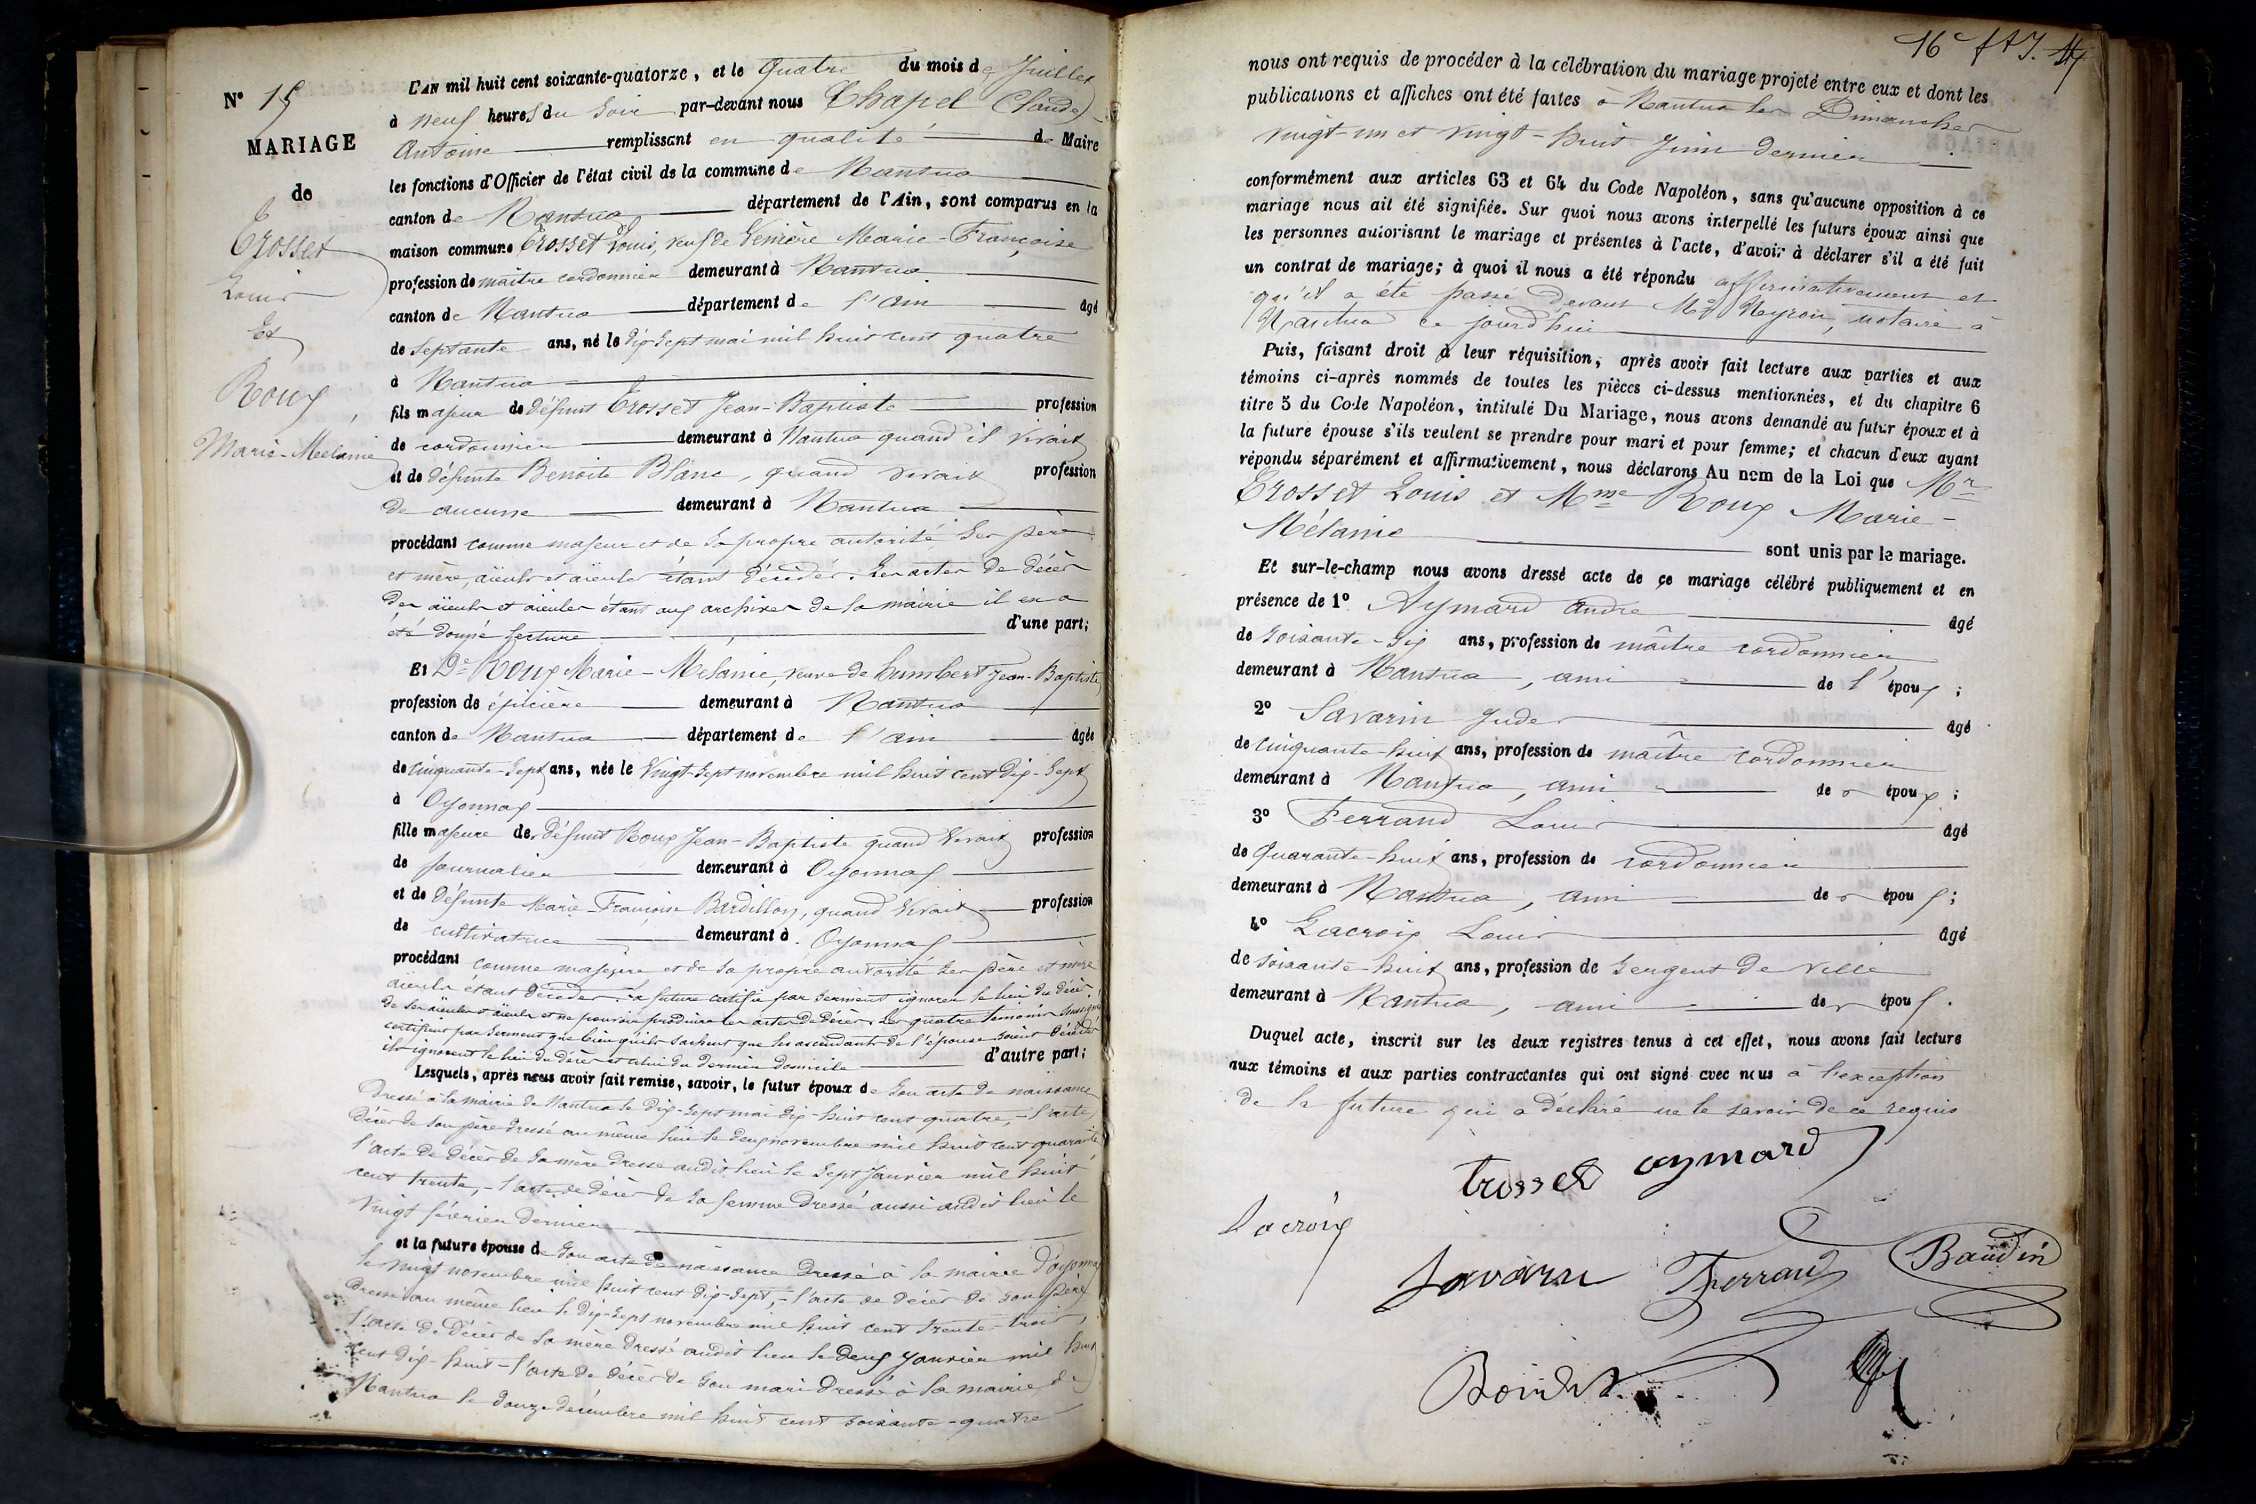 N° 15
MARIAGE
de
Trosset
Louis
Et
Roux
Marie-Mélanie
L'AN mil huit cent soixante-quatorze, et le Quatre du mois de Juillet
à neuf heures du soir par-devant nous Chapel (Claude)
Antoine remplissant en qualité de Maire
les fonctions d'Officier de l'état civil de la commune de Nantua
canton de Nantua département de l'Ain, sont comparus en la
maison commune Trosset Louis, veuf de Marie-Françoise
profession de maître cordonnier demeurant à Nantua
canton de Nantua département de l'ain âgé
de septante ans, né le dix-sept mai mil huit cent quatre
à Nantua
fils majeur de défunt Trosset Jean-Baptiste profession
de cordonnier demeurant à Nantua quand il vivait
et de défunte Benoite Blanc, quand vivait profession
de aucune demeurant à Nantua
procédant comme majeur et de sa propre autorité ses père
et mère, aïeuls et aïeules étant décédés. Les actes de décès
des aïeuls et aïeules étant aux archives de la mairie il en a
été donné lecture d'une part;
Et De Roux Marie-Mélanie, veuve de humbert Jean-Baptiste
profession de épicière demeurant à Nantua
canton de Nantua département de l'ain âgée
de cinquante-sept ans, née le vingt-sept novembre mil huit cent dix-sept
à Oyonnax
fille majeure de défunt Roux Jean-Baptiste quand vivait profession
de journalier demeurant à Oyonnax
et de défunte Marie-Françoise Bardillon, quand vivait profession
de cultivatrice demeurant à Oyonnax
procédant comme majeure et de sa propre autorité ses père et mère
aïeuls étant décédés. La future certifie par serment ignorer le lieu du décès
de ses aïeuls et aïeules et ne pouvoir produire les actes de décès. Les quatre témoins
certifient par serment que bien qu'ils sachent que les ascendants de l'épouse soient décédés
ils ignorent le lieu du décès et celui du dernier domicile d'autre part;
Lesquels, après nous avoir fait remise, savoir, le futur époux de son acte de naissance
dressé à la mairie de Nantua le dix-sept mai dix-huit cent quatre, - l'acte
décès de son père dressé au même lieu le deux novembre mil huit cent quarante
l'acte de décès de sa mère dressé audit lieu le sept janvier mil huit
cent trente, - l'acte de décès de sa femme dressé aussi audit lieu le
vingt février dernier
et la future épouse de son acte de naissance dressé à la mairie d'oyonnax
le vingt novembre mil huit cent dix-sept, - l'acte de décès de son père
dressé au même lieu le dix-sept novembre mil huit cent trente-trois,
l'acte de décès de sa mère dressé audit lieu le deux janvier mil huit
cent dix-huit - l'acte de décès de son mari dressé à la mairie de
Nantua le douze décembre mil huit cent soixante-quatre
16e
nous ont requis de procéder à la célébration du mariage projeté entre eux et dont les
publications et affiches ont été faites à Nantua les Dimanches
vingt-un et vingt-huit Juin dernier
conformément aux articles 63 et 64 du Code Napoléon, sans qu'aucune opposition à ce
mariage nous ait été signifiée. Sur quoi nous avons interpellé les futurs époux ainsi que
les personnes autorisant le mariage et présentes à l'acte, d'avoir à déclarer s'il a été fait
un contrat de mariage; à quoi il nous a été répondu affirmativement et
qu'il a été passé devant Me Neyron, notaire à
Nantua ce jourd'hui
Puis, faisant droit à leur réquisition, après avoir fait lecture aux parties et aux
témoins ci-après nommés de toutes les pièces ci-dessus mentionnées, et du chapitre 6
titre 5 du Code Napoléon, intitulé Du Mariage, nous avons demandé au futur époux et à
la future épouse s'ils veulent se prendre pour mari et pour femme; et chacun d'eux ayant
répondu séparément et affirmativement, nous déclarons Au nom de la Loi que Mr
Trosset Louis et Mme Roux Marie-
Mélanie sont unis par le mariage.
Et sur-le-champ nous avons dressé acte de ce mariage célébré publiquement et en
présence de 1° Aymard André âgé
de soixante-six ans, profession de maître cordonnier
demeurant à Nantua, ami de l'époux;
2° Savarin Jules âgé
de cinquante-huit ans, profession de maître cordonnier
demeurant à Nantua, ami des époux;
3° Ferrand Louis âgé
de Quarante-huit ans, profession de cordonnier
demeurant à Nantua, ami des époux;
4° Lacroix Louis âgé
de soixante-huit ans, profession de sergent de ville
demeurant à Nantua, ami des époux.
Duquel acte, inscrit sur les deux registres tenus à cet effet, nous avons fait lecture
aux témoins et aux parties contractantes qui ont signé avec nous à l'exception
de la future qui a déclaré ne le savoir de ce requis
trosset aymard
Lacroix
Savarin Ferrand Baudin